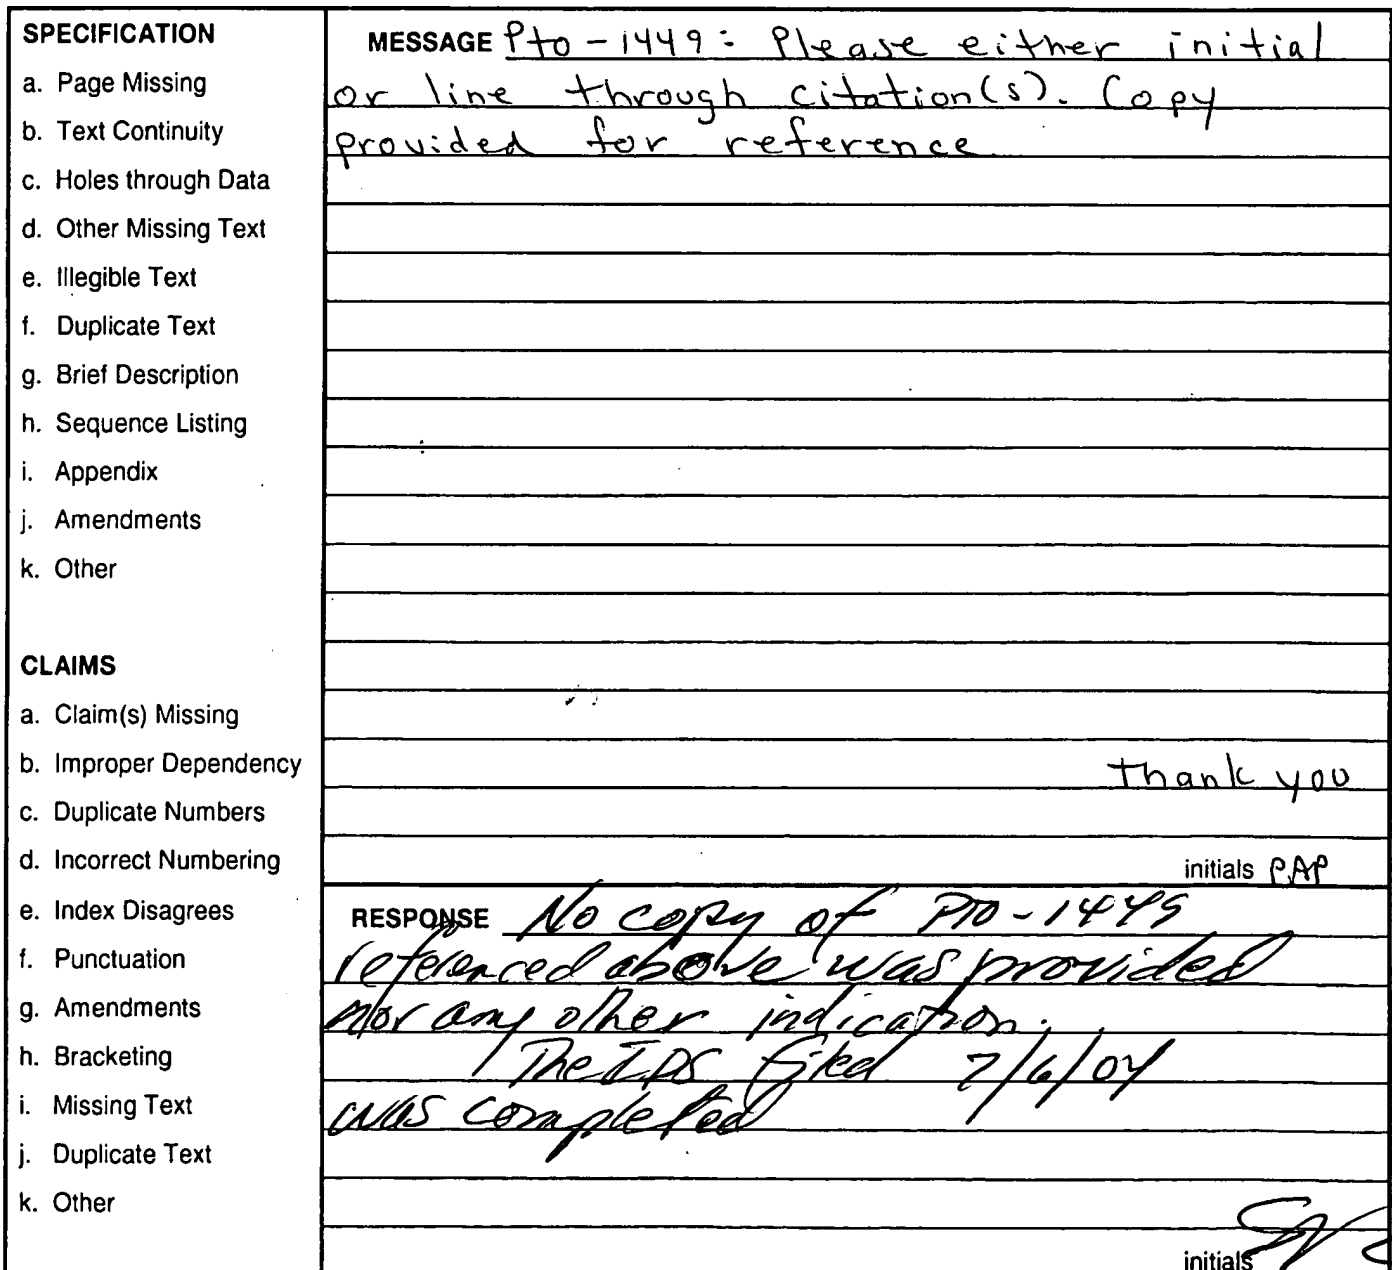 SPECIFICATION
a. Page Missing
b. Text Continuity
c. Holes through Data
d. Other Missing Text
e. Illegible Text
f. Duplicate Text
g. Brief Description
h. Sequence Listing
i. Appendix
j. Amendments
k. Other
CLAIMS
a. Claim(s) Missing
b. Improper Dependency
c. Duplicate Numbers
d. Incorrect Numbering
e. Index Disagrees
f. Punctuation
g. Amendments
h. Bracketing
i. Missing Text
j. Duplicate Text
k. Other
MESSAGE Pto-1449: Please either initial
or line through citation(s). Copy
provided for reference
thank you
initials PAP
RESPONSE No copy of PTO-1449
referenced above was provided
nor any other indication.
The IDS filed 7/6/04
was completed
initials